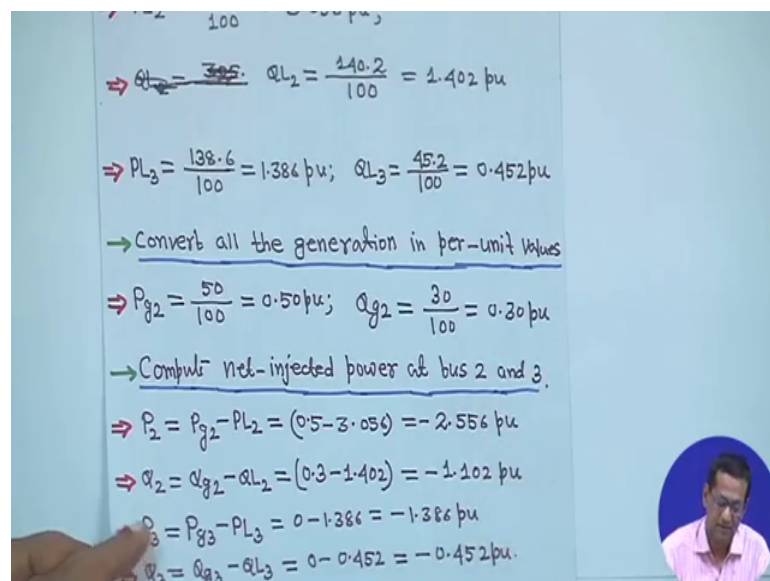 100
⇒ QL₂ = 305. QL₂ = 140.2/100 = 1.402 pu
⇒ PL₃ = 138.6/100 = 1.386 pu; QL₃ = 45.2/100 = 0.452 pu
→ Convert all the generation in per-unit values
⇒ Pg₂ = 50/100 = 0.50 pu; Qg₂ = 30/100 = 0.30 pu
→ Compute net-injected power at bus 2 and 3.
⇒ P₂ = Pg₂ - PL₂ = (0.5 - 3.056) = - 2.556 pu
⇒ Q₂ = Qg₂ - QL₂ = (0.3 - 1.402) = - 1.102 pu
P₃ = Pg₃ - PL₃ = 0 - 1.386 = - 1.386 pu
Q₃ = Qg₃ - QL₃ = 0 - 0.452 = - 0.452 pu.